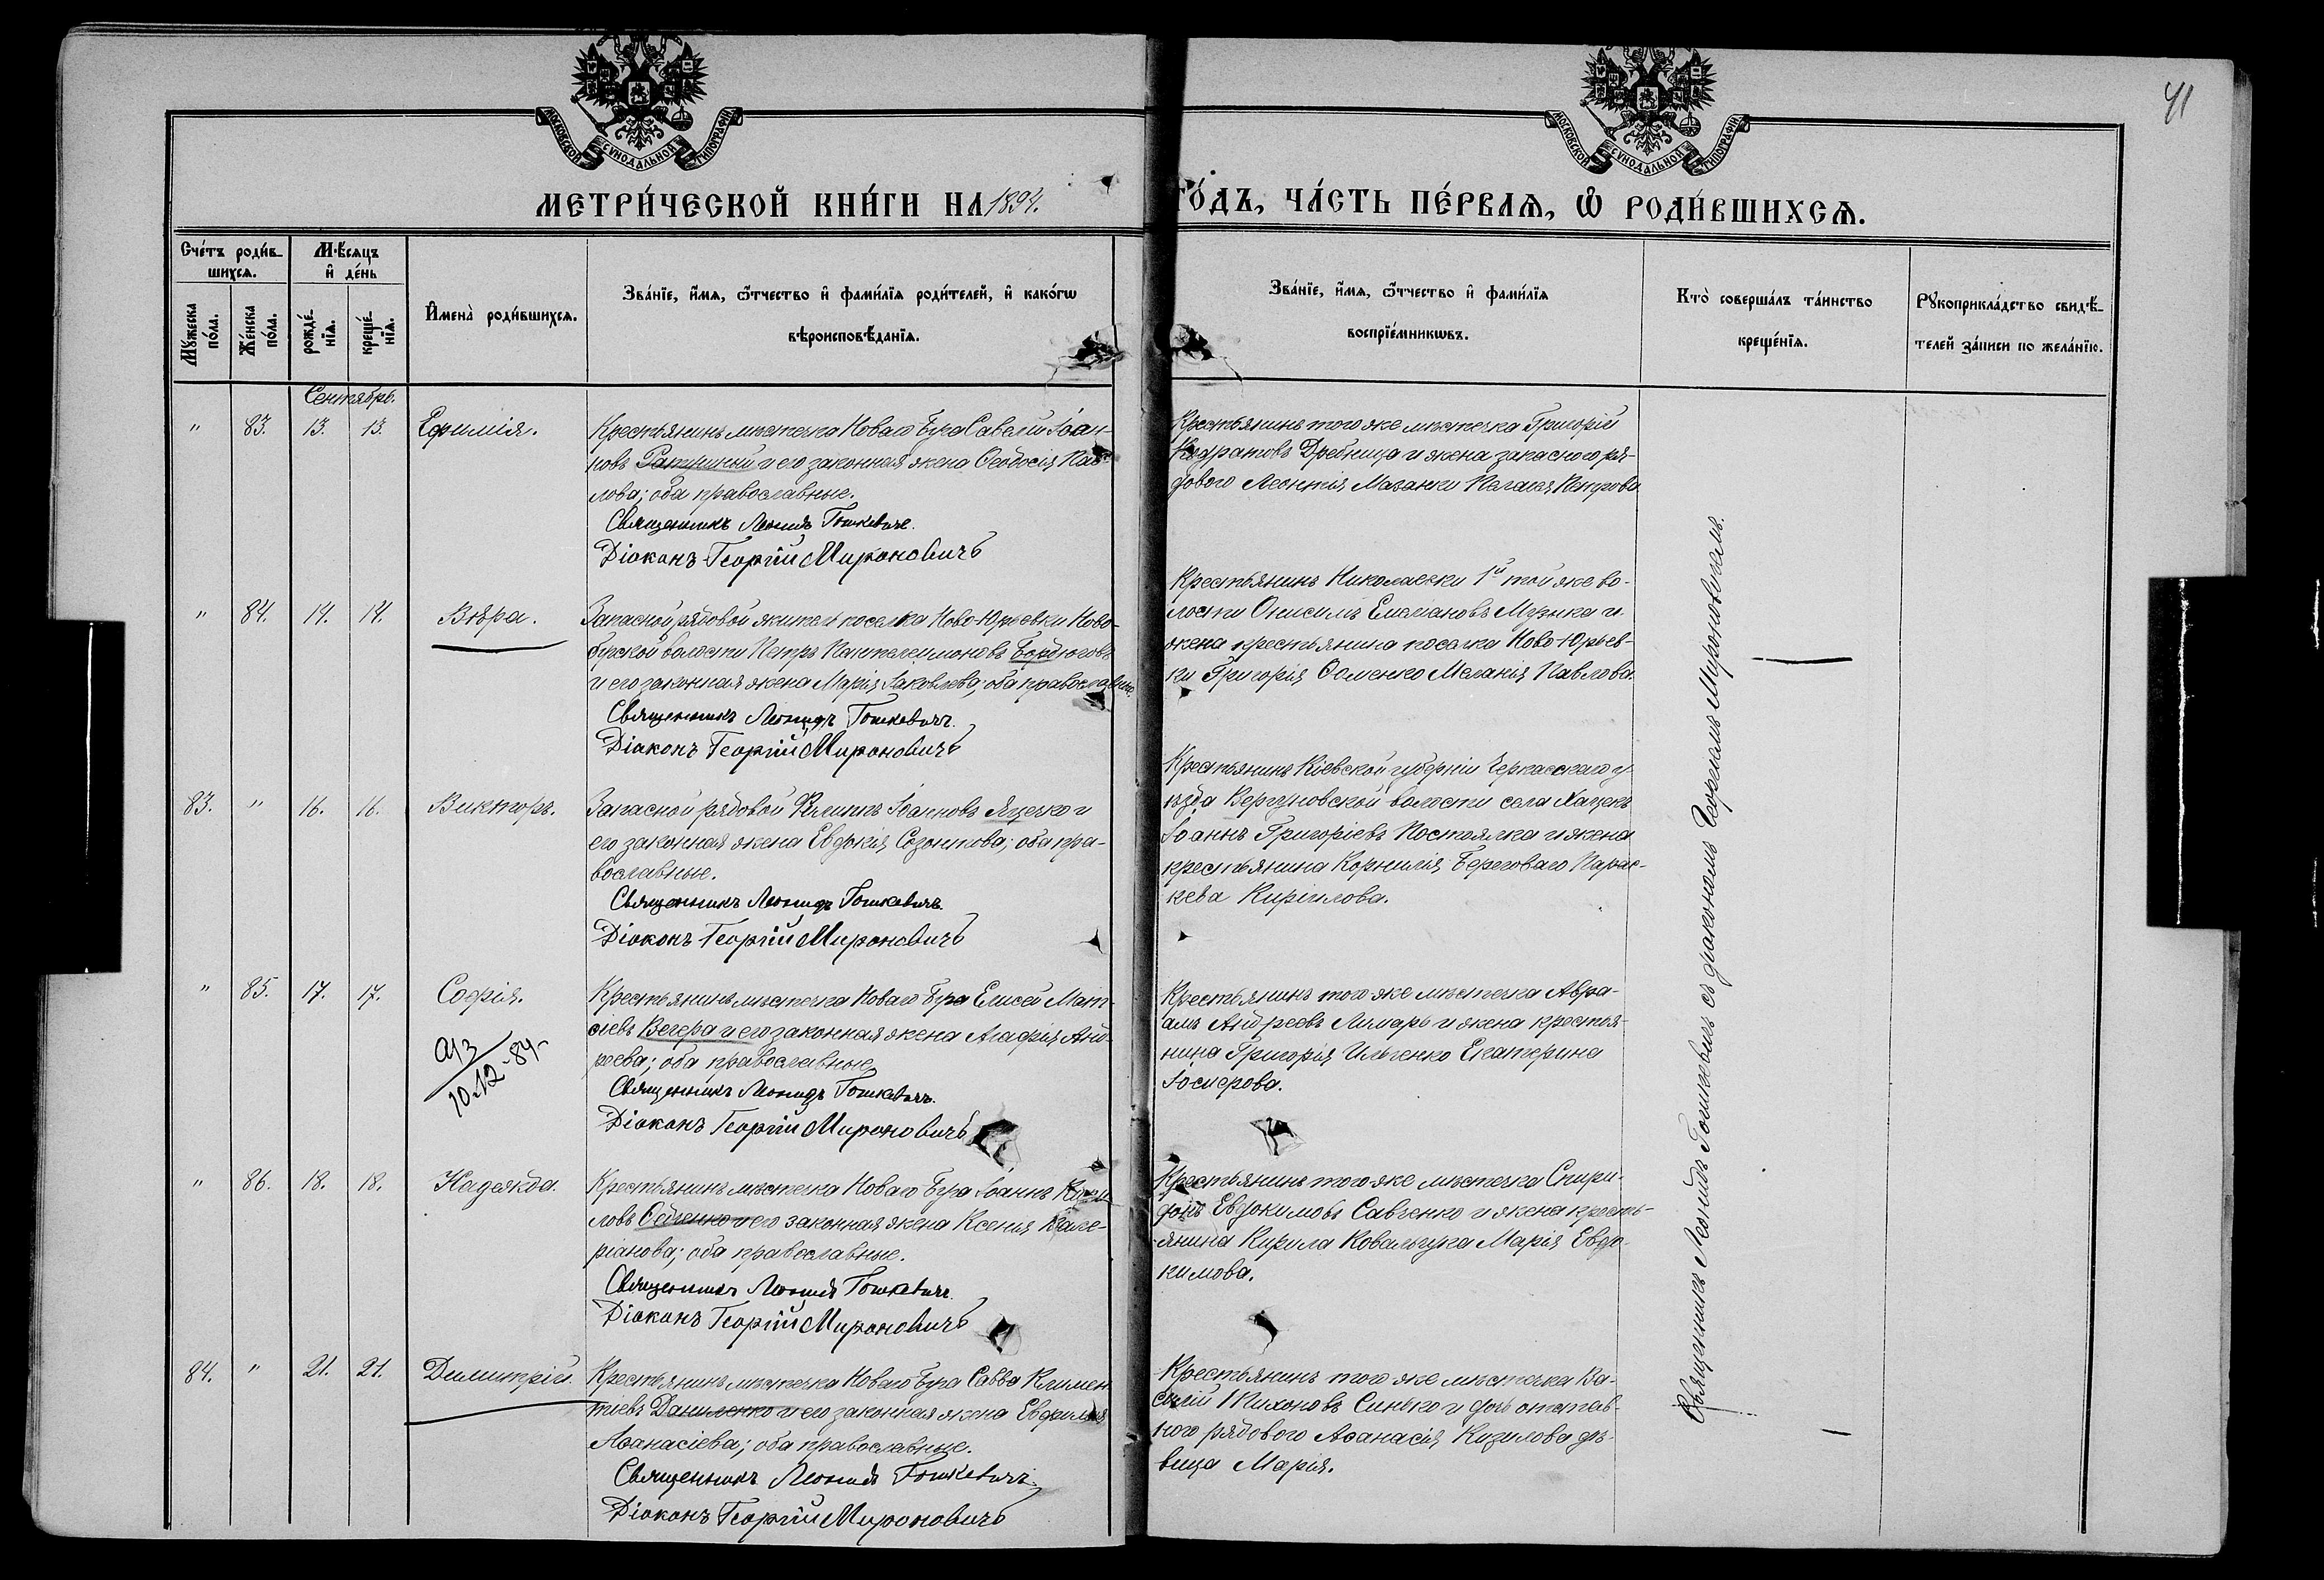 41
МОСКОВСКОЙ СѴНОДАЛЬНОЙ ТИПОГРАФІИ
МОСКОВСКОЙ СѴНОДАЛЬНОЙ ТИПОГРАФІИ
МЕТРИ́ЧЕСКОЙ КНИ́ГИ НА 1894.
ГО́ДЪ, ЧА́СТЬ ПЕ́РВАѦ, Ѡ РОДИ́ВШИХСѦ.
Сче́тъ роди́в-
шихсѧ.
Мꙋ́жеска по́ла.
Же́нска по́ла.
Мѣ́сѧцъ
и҆ де́нь
рожде́-
нїѧ.
креще́-
нїѧ.
И҆мена̀ роди́вшихсѧ.
Зва́нїе, и҆́мѧ, ѻ҆́тчество и҆ фами́лїѧ роди́телей, и҆ како́гѡ
вѣроисповѣ́данїѧ.
Зва́нїе, и҆́мѧ, ѻ҆́тчество и҆ фами́лїѧ
воспрїе́мникѡвъ.
Кто̀ соверша́лъ та́инство
креще́нїѧ.
Рꙋкоприкла́дство свидѣ́-
телей за́писи по жела́нїю.
Сентябрь.
" 83. 13. 13. Ефимія.
Крестьянинъ мѣстечка Новаго Буга Савелій Іоан-
новъ и его законная жена Ѳеодосія Пав-
лова; оба православные.
Священникъ Леонидъ Гошкевичъ.
Діаконъ Георгій Мироновичъ
Крестьянинъ того же мѣстечка Григорій
Кодратовъ Дребница и жена запаснаго ря-
дового Леонтія Мазанки Пелагія Петрова
" 84. 14. 14. Вѣра.
Запасной рядовой житель поселка Ново-Юрьевки Ново-
бугской волости Петръ Пантелеимоновъ Бордюговъ
и его законная жена Марія Іаковлева; оба православные.
Священникъ Леонидъ Гошкевичъ.
Діаконъ Георгій Мироновичъ
Крестьянинъ Николаевки 1й той же во-
лости Онисимъ Емеліановъ Музыка и
жена крестьянина поселка Ново-Юрьев-
ки Григорія Фоменко Меланія Павлова
83. " 16. 16. Викторъ.
Запасной рядовой Филиппъ Іоанновъ Яценко и
его законная жена Евдокія Созонтова; оба пра-
вославные.
Священникъ Леонидъ Гошкевичъ.
Діаконъ Георгій Мироновичъ
Крестьянинъ Кіевской губерніи Черкасскаго у-
ѣзда Вергуновской волости села Хацекъ
Іоаннъ Григоріевъ Постоялка и жена
крестьянина Корнилія Береговаго Парас-
кева Кирилова.
" 85. 17. 17. Софія.
10.12-84-
Крестьянинъ мѣстечка Новаго Буга Елисей Мат-
ѳіевъ Вечера и его законная жена Агафія Анд-
реева; оба православные
Священникъ Леонидъ Гошкевичъ.
Діаконъ Георгій Мироновичъ
Крестьянинъ того же мѣстечка Авра-
амъ Андреевъ Лимарь и жена крестья-
нина Григорія Ильченко Екатерина
" 86. 18. 18. Надежда.
Крестьянинъ мѣстечка Новаго Буга Іоаннъ Кирил-
ловъ и его законная жена Ксенія Вале-
ріанова; оба православные.
Священникъ Леонидъ Гошкевичъ.
Діаконъ Георгій Мироновичъ
Крестьянинъ того же мѣстечка Спири-
донъ Евдокимовъ Савченко и жена кресть-
янина Кирила Ковальчука Марія Евдо-
кимова.
84. " 21. 21. Димитрій.
Крестьянинъ мѣстечка Новаго Буга Савва Климен-
тиевъ Даниленко и его законная жена Евфимія
Аѳанасіева; оба православные.
Священникъ Леонидъ Гошкевичъ.
Діаконъ Георгій Мироновичъ
Крестьянинъ того же мѣстечка Ва-
силій Тихоновъ Синько и дочь отстав-
ного рядового Аѳанасія Кизилова дѣ-
вица Марія.
Священникъ Леонидъ Гошкевичъ съ діакономъ Георгіемъ Мироновичемъ.